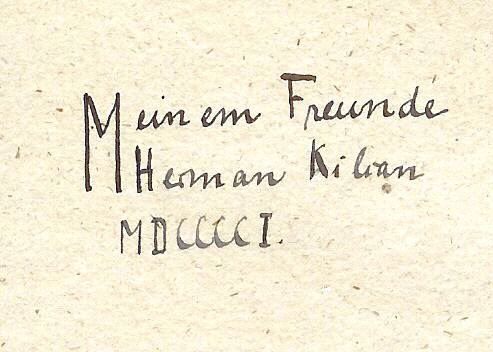 Meinem Freunde
Herman Kilian
MDCCCCI.